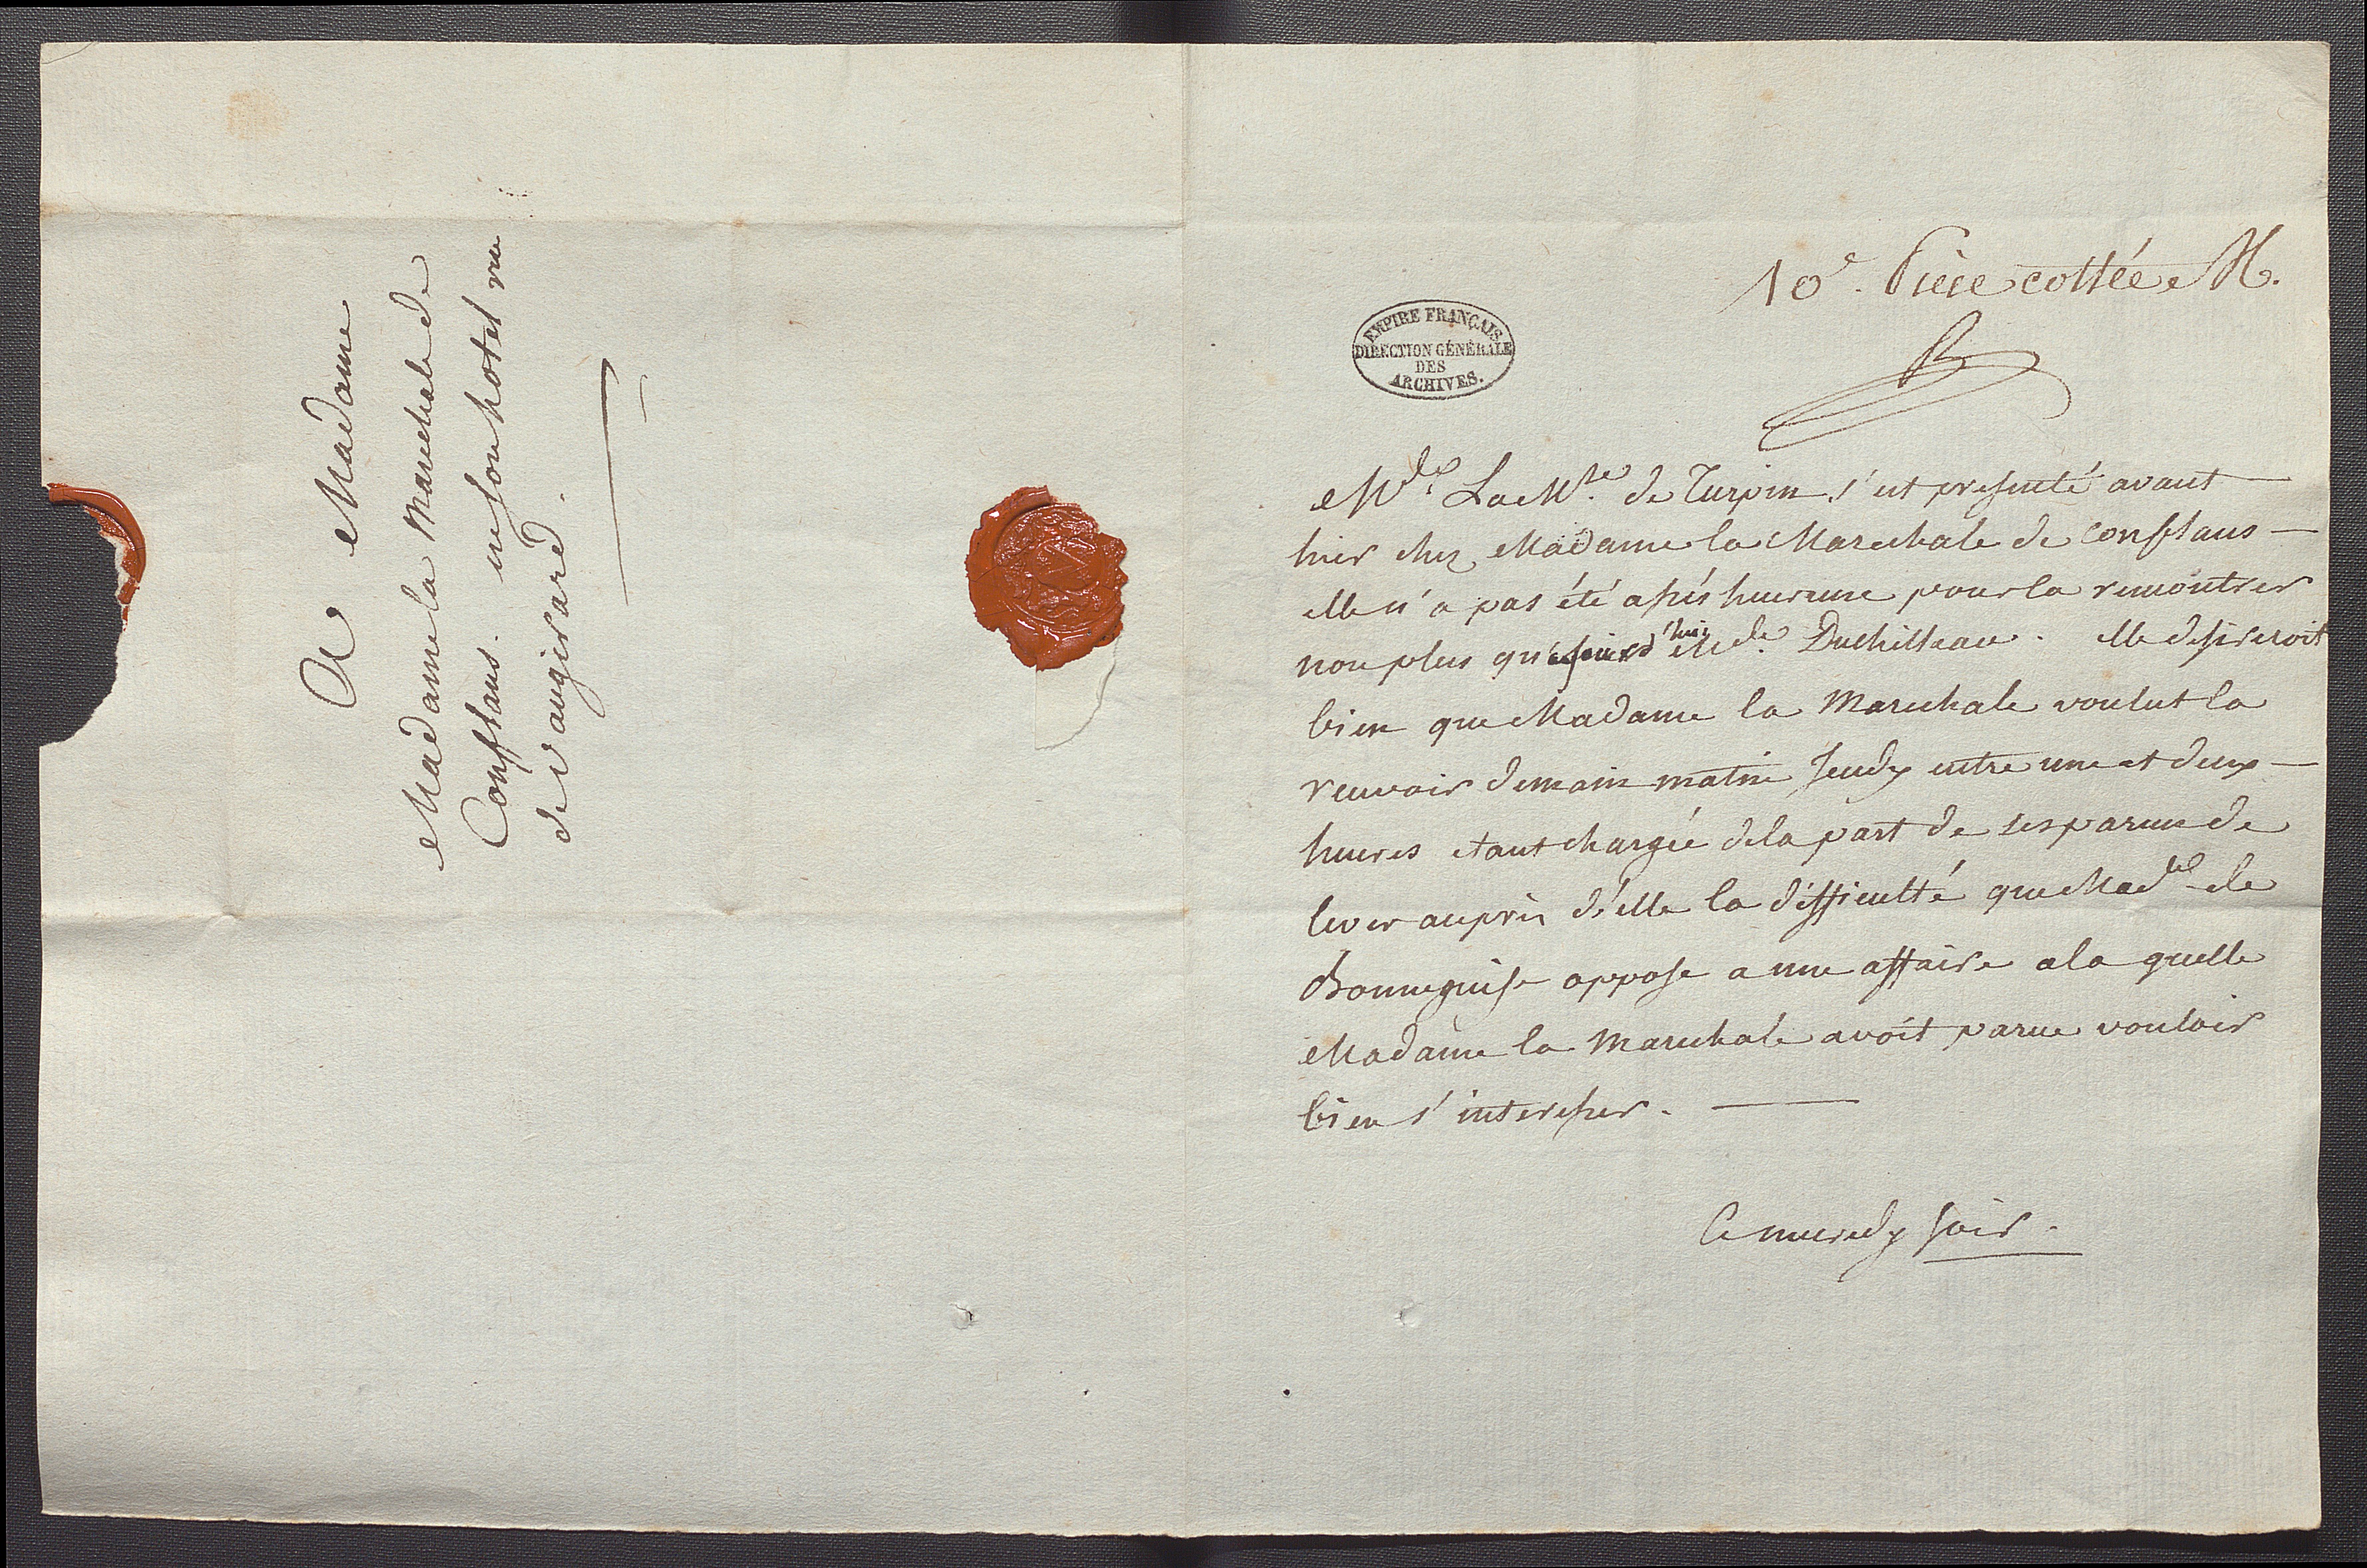 A Madame
Madame la Marechale de
Conflans. en son hotel rue
de vaugirard.
10e. Pièce cottée M.
EMPIRE FRANÇAIS
DIRECTION GÉNÉRALE
DES
ARCHIVES.
Mde. La Mse. de Turpin s'est presenté avant
hier chez Madame la Marechale de conflans
elle n'a pas été assés heureuse pour la rencontrer
non plus qu'aujourd'hui Mde. Duchilleau. elle desireroit
bien que Madame la Marechale voulut la
recevoir demain matin Jeudy entre une et deux
heures etant chargée de la part de ses parens de
lever auprès d'elle la difficulté que Made. de
Bonneguise oppose a une affaire a la quelle
Madame la Marechale avoit parue vouloir
bien s'interesser.
Ce mecredy soir.